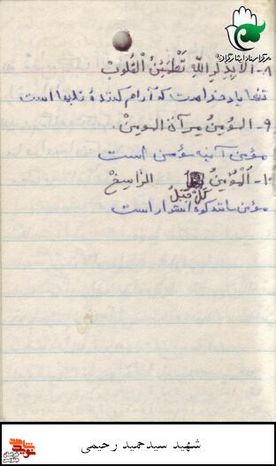 ۸- الا بذکر الله تطمئن القلوب
تنها یاد خداست که آرام کننده قلبها است
۹- المؤمن مرآة المومن
مؤمن آئینه مؤمن است
۱۰- المؤمن کالجبل الراسخ
مؤمن مانند کوه استوار است
شهید سیدحمید رحیمی